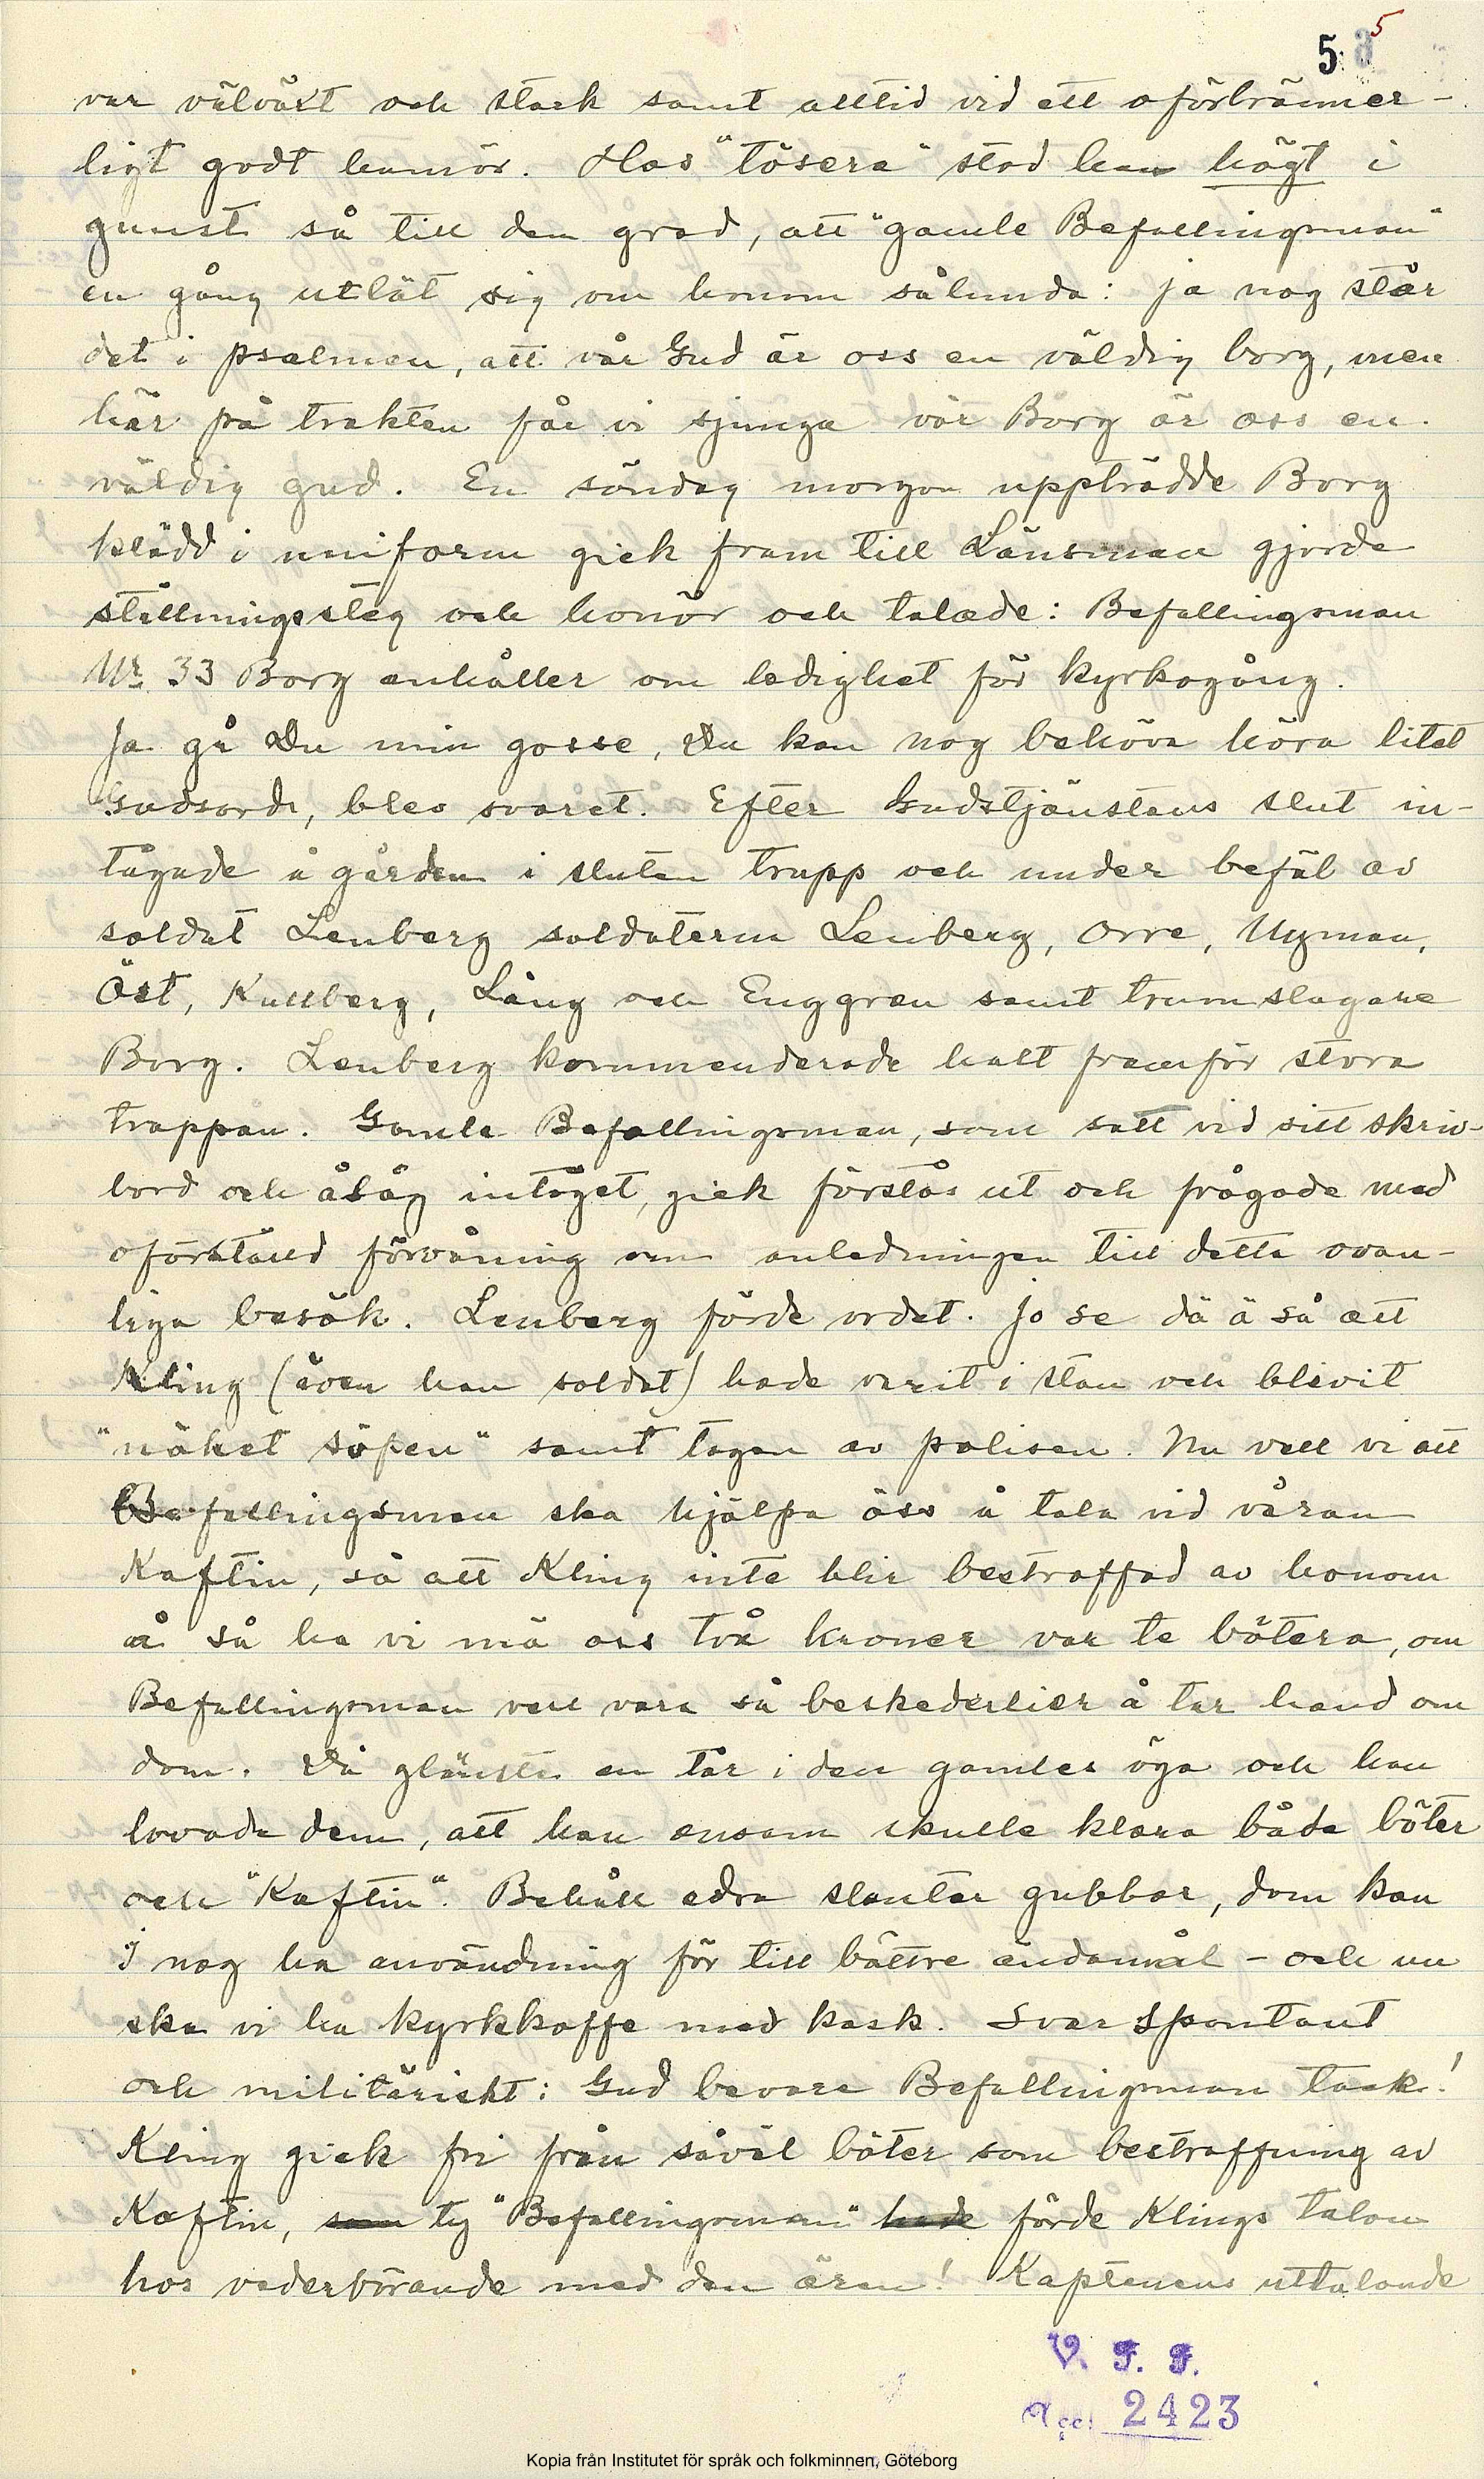 5 5
var välväxt och stark samt alltid vid ett oförbränner-
ligt godt humör. Hos "tösera" stod han högt i
gunst så till den grad, att "gamle Befallingsman"
en gång utlät sig om honom sålunda: ja nog står
det i psalmen, att vår Gud är oss en väldig borg, men
här på trakten får vi sjunga vår Borg är oss en
väldig gud. En söndag morgon uppträdde Borg
klädd i uniform gick fram till Länsman gjorde
ställningssteg och honör och talade: Befallingsman
Nr 33 Borg anhåller om ledighet för kyrkogång.
Ja gå Du min gosse, Du kan nog behöva höra litet
Gudsord, blev svaret. Efter Gudstjänstens slut in-
tågade å gården i sluten trupp och under befäl av
soldat Lenberg soldaterna Lenberg, Orre, Nyman,
Öst, Kullberg, Lång och Enggren samt trumslagare
Borg. Lenberg kommenderade halt framför stora
trappan. Gamle Befallingsman, som satt vid sitt skriv-
bord och åsåg intåget, gick förstås ut och frågade med
oförställd förvåning om anledningen till detta ovan-
liga besök. Lenberg förde ordet. Jo se dä ä så att
Kling (även han soldat) hade varit i stan och blivit
"nôket söpen" samt tagen av polisen. Nu vell vi att
Befallingsman ska hjälpa öss å tala vid våran
Kaftin, så att Kling inte blir bestraffad av honom
å så ha vi mä oss två kroner var te bötera, om
Befallingsman vell vara så beskederlier å tar hand om
dom. Då glänste en tår i den gamles öga och han
lovade dem, att han ensam skulle klara både böter
och "Kaftin". Behåll edra slantar gubbar, dom kan
I nog ha användning för till bättre ändamål - och nu
ska vi ha kyrkkaffe med kask. Svar spontant
och militäriskt: Gud bevare Befallingsman tack!
Kling gick fri från såväl böter som bestraffning av
Kaftin, som ty "Befallingsman" hade förde Klings talan
hos vederbörande med den äran! Kaptenens uttalande
V. F. F.
Acc. 2423
Kopia från Institutet för språk och folkminnen, Göteborg